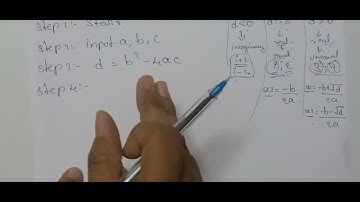 step 1:- Start
step 2:- input a, b, c
step 3:- d = b² - 4ac
step 4:-
d<0
imaginary
real
equal
real
unequal
x1 = -b
2a
x1 = -b+√d
2a
x2 = -b-√d
2a